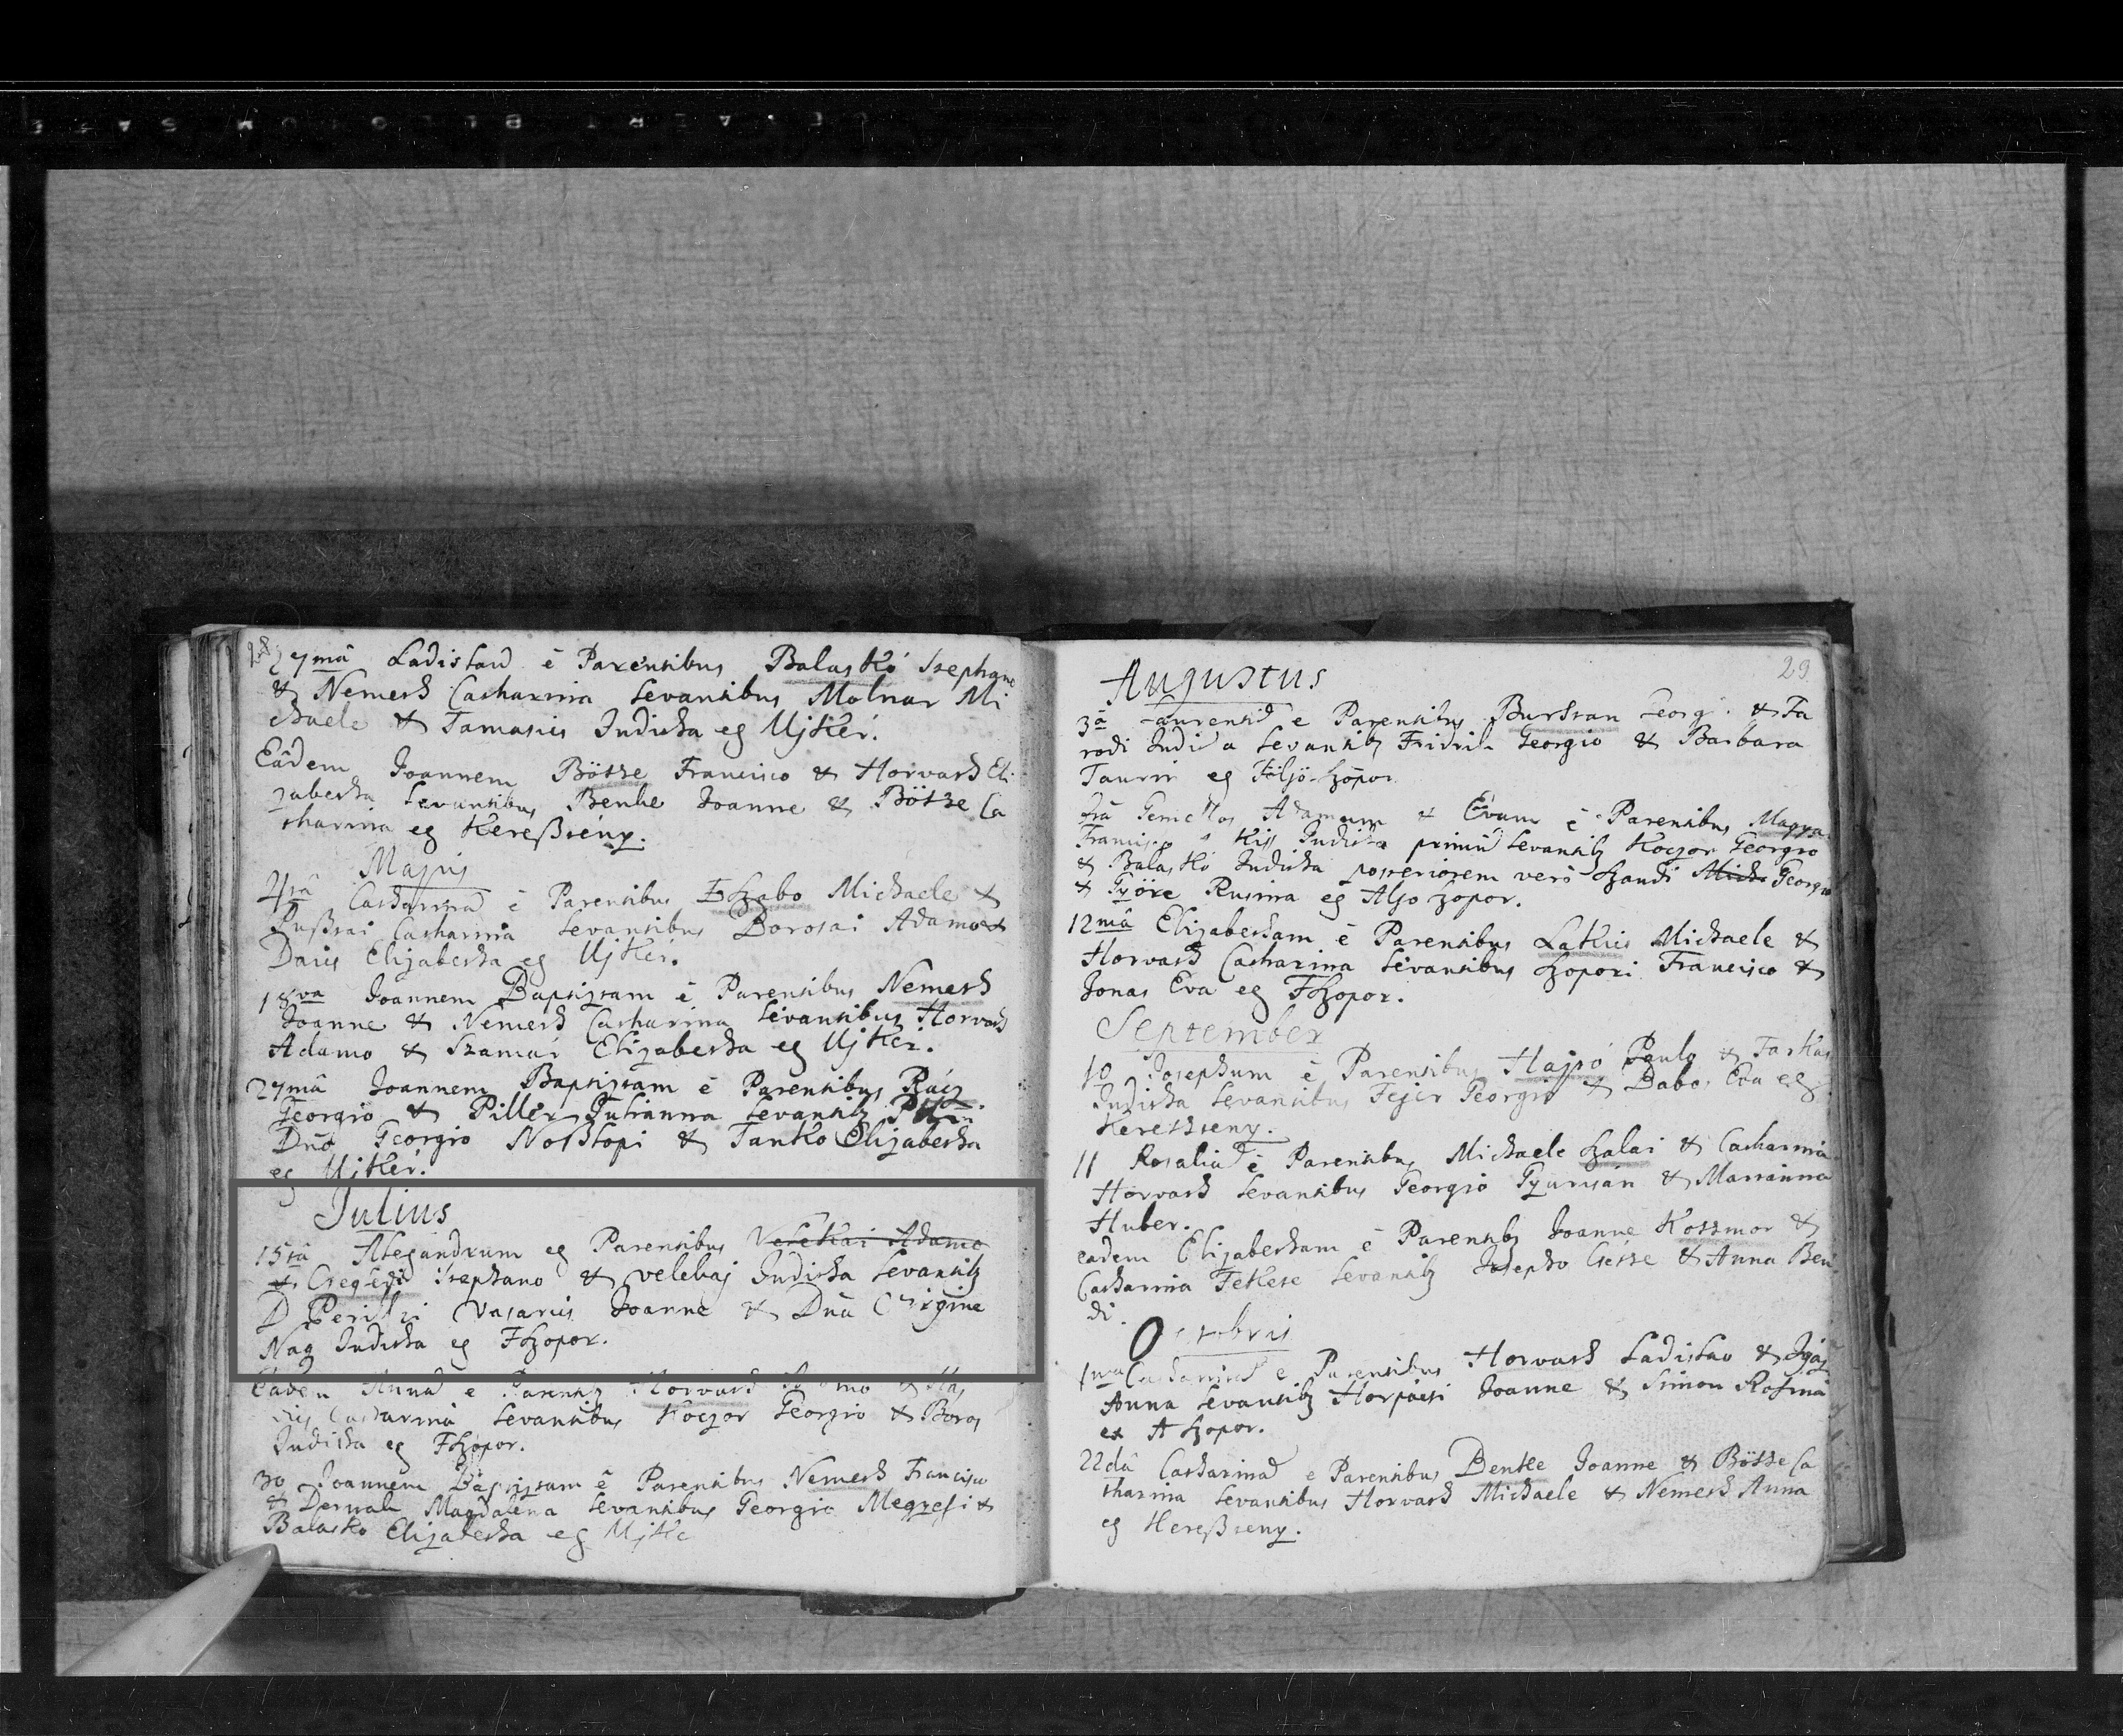 28
27mâ Ladislaū ē Parentibus Balaskó Stephano
& Nemeth Catharina Levantibus Molnar Mi
chaele & Tamasics Juditha eg Ujker.
Eâdem Joannem Bötze Francisco & Horvath Eli
zabetha Levantibus Benke Joanne & Bötze Ca
tharina eg Kereßtény.
Majus
Catharinā ē Parentibus Szabo Michaele &
Pußtai Catharina Levantibus Borosai Adamo &
Elizabetha eg Ujkér.
18va Joannem Baptistam ē Parentibus Nemeth
Joanne & Nemeth Catharina Levantibus Horvath
Adamo & Szamár Elizabetha eg Ujkér.
27mâ Joannem Baptistam ē Parentibus Rácz
Georgio & Piller Julianna Levantib
Dnō Georgio & Tanko Elizabetha
eg Ujkér.
Julius
15tâ eg Parentibus Vesekai Adamo
& Czegledi Stephano & velekaj Juditha Levantib
D Vasarus Joanne & Dnā Virgine
Nag Juditha eg FSzopor.
Eadem Annā e Parentib Horvath &
Catharina Levantibus Koczor Georgio & Boros
Juditha eg FSzopor.
30 Joannem Baptistam ē Parentibus Nemeth Francisco
& Magdalena Levantibus Georgio Megyesi &
Balasko Elizabetha eg
29
Augustus
3â Laurentiū e Parentibus Burstan Georg. & Fa
rodi Levantib Fridrik Georgio & Barbara
Taurin eg Fölső-Szopor
Gemellos Adamum & Evam ē Parentibus
Kiss Juditha primū Levantib Koczor Georgio
& Balaskó Juditha posteriorem verò Szandi Mich Georgio
& Györe Rusina eg Alsoszopor.
12mâ Elizabetham ē Parentibus Lakics Michaele &
Horvath Catharina Levantibus Szopori Francisco &
Jonas Eva eg FSzopor.
September
10 Josephum ē Parentibus Hajpó Paulo & Farkas
Juditha Levantibus Fejer Georgio & Dabos Eva eg
Kereszteny.
11 Rosaliā ē Parentibus Michaele Szalai & Catharina
Horvath Levantibus Georgio & Marianna
Huber.
eadem Elizabetham ē Parentib Joanne Koszmor &
Catharina Fekete Levantib Josepho & Anna Ben
di.
Octobris
1ma Catharinā e Parentibus Horvath Ladislao &
Anna Levantib Horpácsi Joanne & Simon Rosina
ex A Szopor.
22dâ Catharinā e Parentibus Benkee Joanne & Bötze Ca
tharina Levantibus Horvath Michaele & Nemeth Anna
eg Kereßteny.